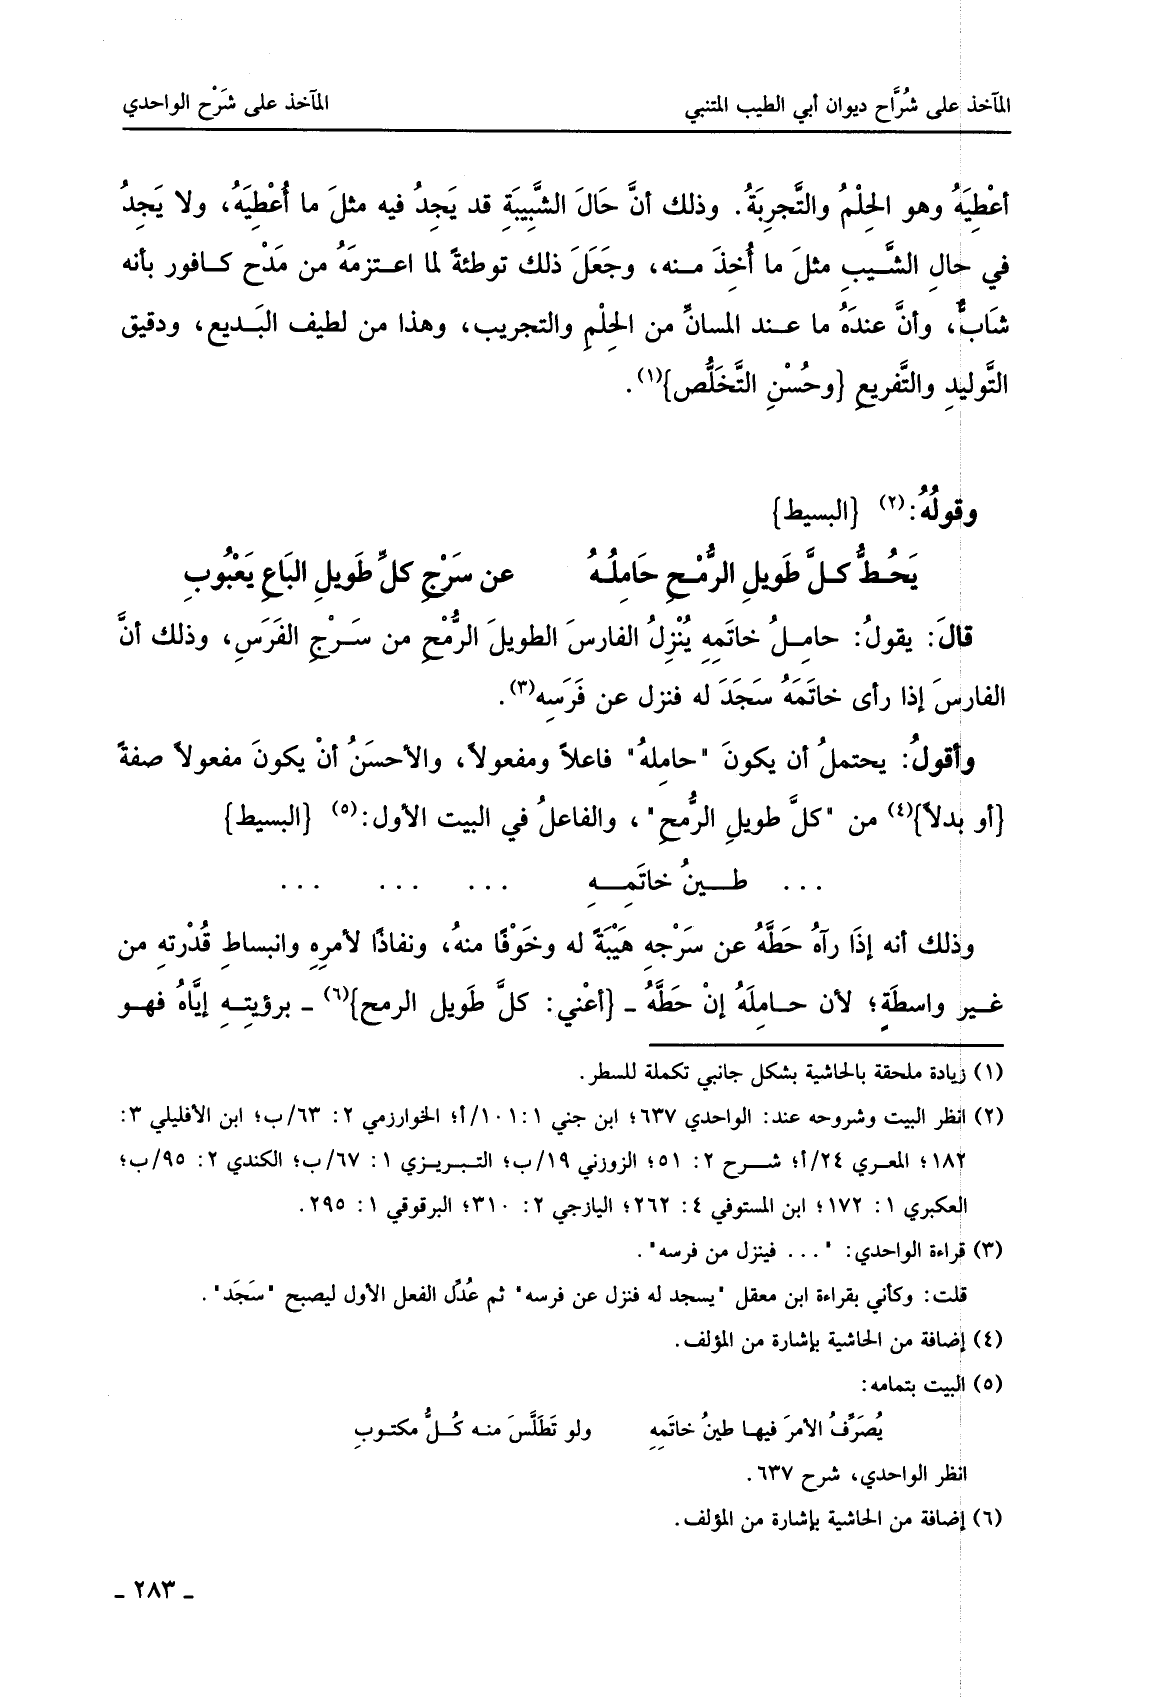 المآخذ على شُرَّاح ديوان أبي الطيب المتنبي المآخذ على شَرْح الواحدي
أعْطِيَهُ وهو الحِلْمُ والتَّجرِبَةُ. وذلك أنَّ حَالَ الشَّبِيبَةِ قد يَجِدُ فيه مثلَ ما أُعْطِيَهُ، ولا يَجِدُ
في حالِ الشَّيبِ مثلَ ما أُخِذَ منه، وجَعَلَ ذلك توطئةً لما اعتزمَهُ من مَدْحِ كافور بأنه
شَابٌّ، وأنَّ عندَهُ ما عند المسانِّ من الحِلْمِ والتجريب، وهذا من لطيف البَديع، ودقيق
التَّوليدِ والتَّفريعِ {وحُسْنِ التَّخَلُّص}(١).
وقولُهُ:(٢) {البسيط}
يَحُطُّ كلَّ طَويلِ الرُّمْحِ حَامِلُهُ عن سَرْجِ كلِّ طَويلِ البَاعِ يَعْبُوبِ
قالَ: يقولُ: حامِلُ خاتَمِهِ يُنْزِلُ الفارسَ الطويلَ الرُّمْحِ من سَرْجِ الفَرَسِ، وذلك أنَّ
الفارسَ إذا رأى خاتَمَهُ سَجَدَ له فنزل عن فَرَسِه(٣).
وأقولُ: يحتملُ أن يكونَ "حامِلهُ" فاعلاً ومفعولاً، والأحسَنُ أنْ يكونَ مفعولاً صفةً
{أو بدلاً}(٤) من "كلَّ طويلِ الرُّمحِ"، والفاعلُ في البيت الأول:(٥) {البسيط}
... طينُ خاتَمِهِ ... ... ...
وذلك أنه إذَا رآهُ حَطَّهُ عن سَرْجِهِ هَيْبَةً له وخَوْفًا منهُ، ونفاذًا لأمرِهِ وانبساطِ قُدْرتهِ من
غير واسطَةٍ؛ لأن حامِلَهُ إنْ حَطَّهُ ـ {أعْني: كلَّ طَويل الرمح}(٦) ـ برؤيتِهِ إيَّاهُ فهو
(١) زيادة ملحقة بالحاشية بشكل جانبي تكملة للسطر.
(٢) انظر البيت وشروحه عند: الواحدي ٦٣٧؛ ابن جني ١: ١٠١/أ؛ الخوارزمي ٢: ٦٣/ب؛ ابن الأفليلي ٣:
١٨٢؛ المعري ٢٤/أ؛ شرح ٢: ٥١؛ الزوزني ١٩/ب؛ التبريزي ١: ٦٧/ب؛ الكندي ٢: ٩٥/ب؛
العكبري ١: ١٧٢؛ ابن المستوفي ٤: ٢٦٢؛ اليازجي ٢: ٣١٠؛ البرقوقي ١: ٢٩٥.
(٣) قراءة الواحدي: "... فينزل من فرسه".
قلت: وكأني بقراءة ابن معقل "يسجد له فنزل عن فرسه" ثم عُدِّل الفعل الأول ليصبح "سَجَد".
(٤) إضافة من الحاشية بإشارة من المؤلف.
(٥) البيت بتمامه:
يُصَرِّفُ الأمرَ فيها طينُ خاتَمِهِ ولو تَطَلَّسَ منه كُلُّ مكتوبِ
انظر الواحدي، شرح ٦٣٧.
(٦) إضافة من الحاشية بإشارة من المؤلف.
ـ ٢٨٣ ـ